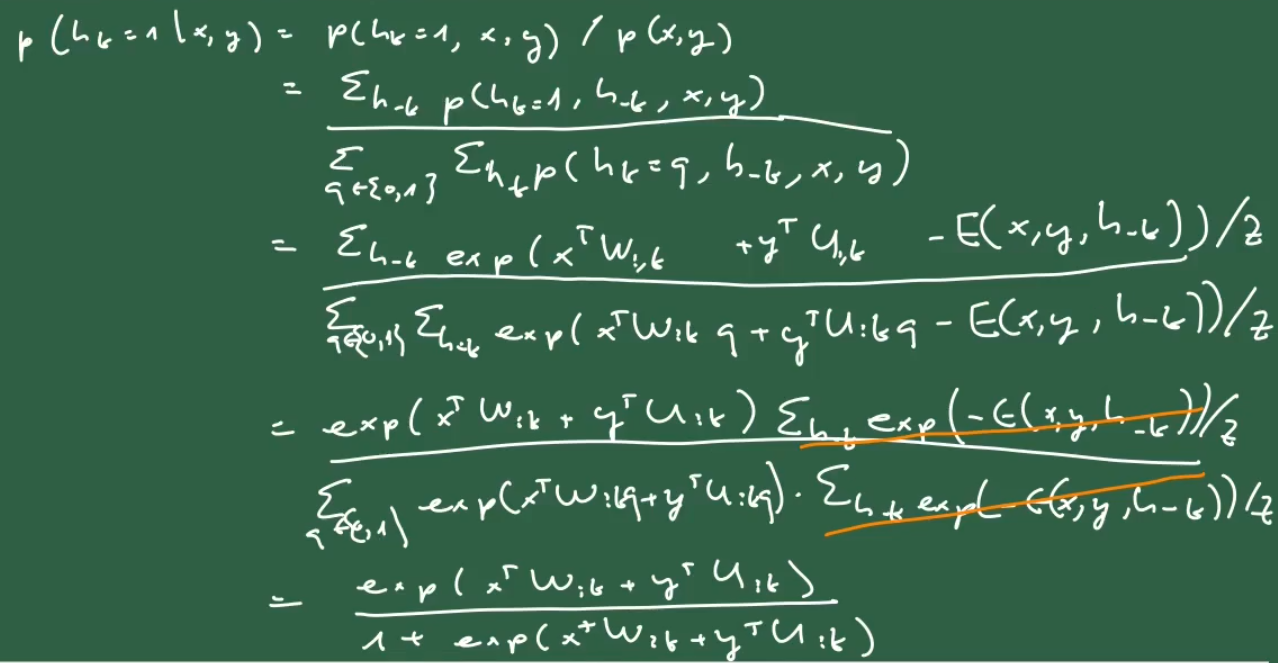 p(hₖ=1|x,y) = p(hₖ=1, x, y) / p(x,y)
= Σh₋ₖ p(hₖ=1, h₋ₖ, x, y)
Σ q∈{0,1} Σh₋ₖ p(hₖ=q, h₋ₖ, x, y)
= Σh₋ₖ exp(xᵀW:,k + yᵀU:,k - E(x,y,h₋ₖ))/Z
Σ q∈{0,1} Σh₋ₖ exp(xᵀW:k q + yᵀU:k q - E(x,y,h₋ₖ))/Z
= exp(xᵀW:k + yᵀU:k) Σh₋ₖ exp(-E(x,y,h₋ₖ))/Z
Σ q∈{0,1} exp(xᵀW:kq + yᵀU:kq) · Σh₋ₖ exp(-E(x,y,h₋ₖ))/Z
= exp(xᵀW:k + yᵀU:k)
1 + exp(xᵀW:k + yᵀU:k)